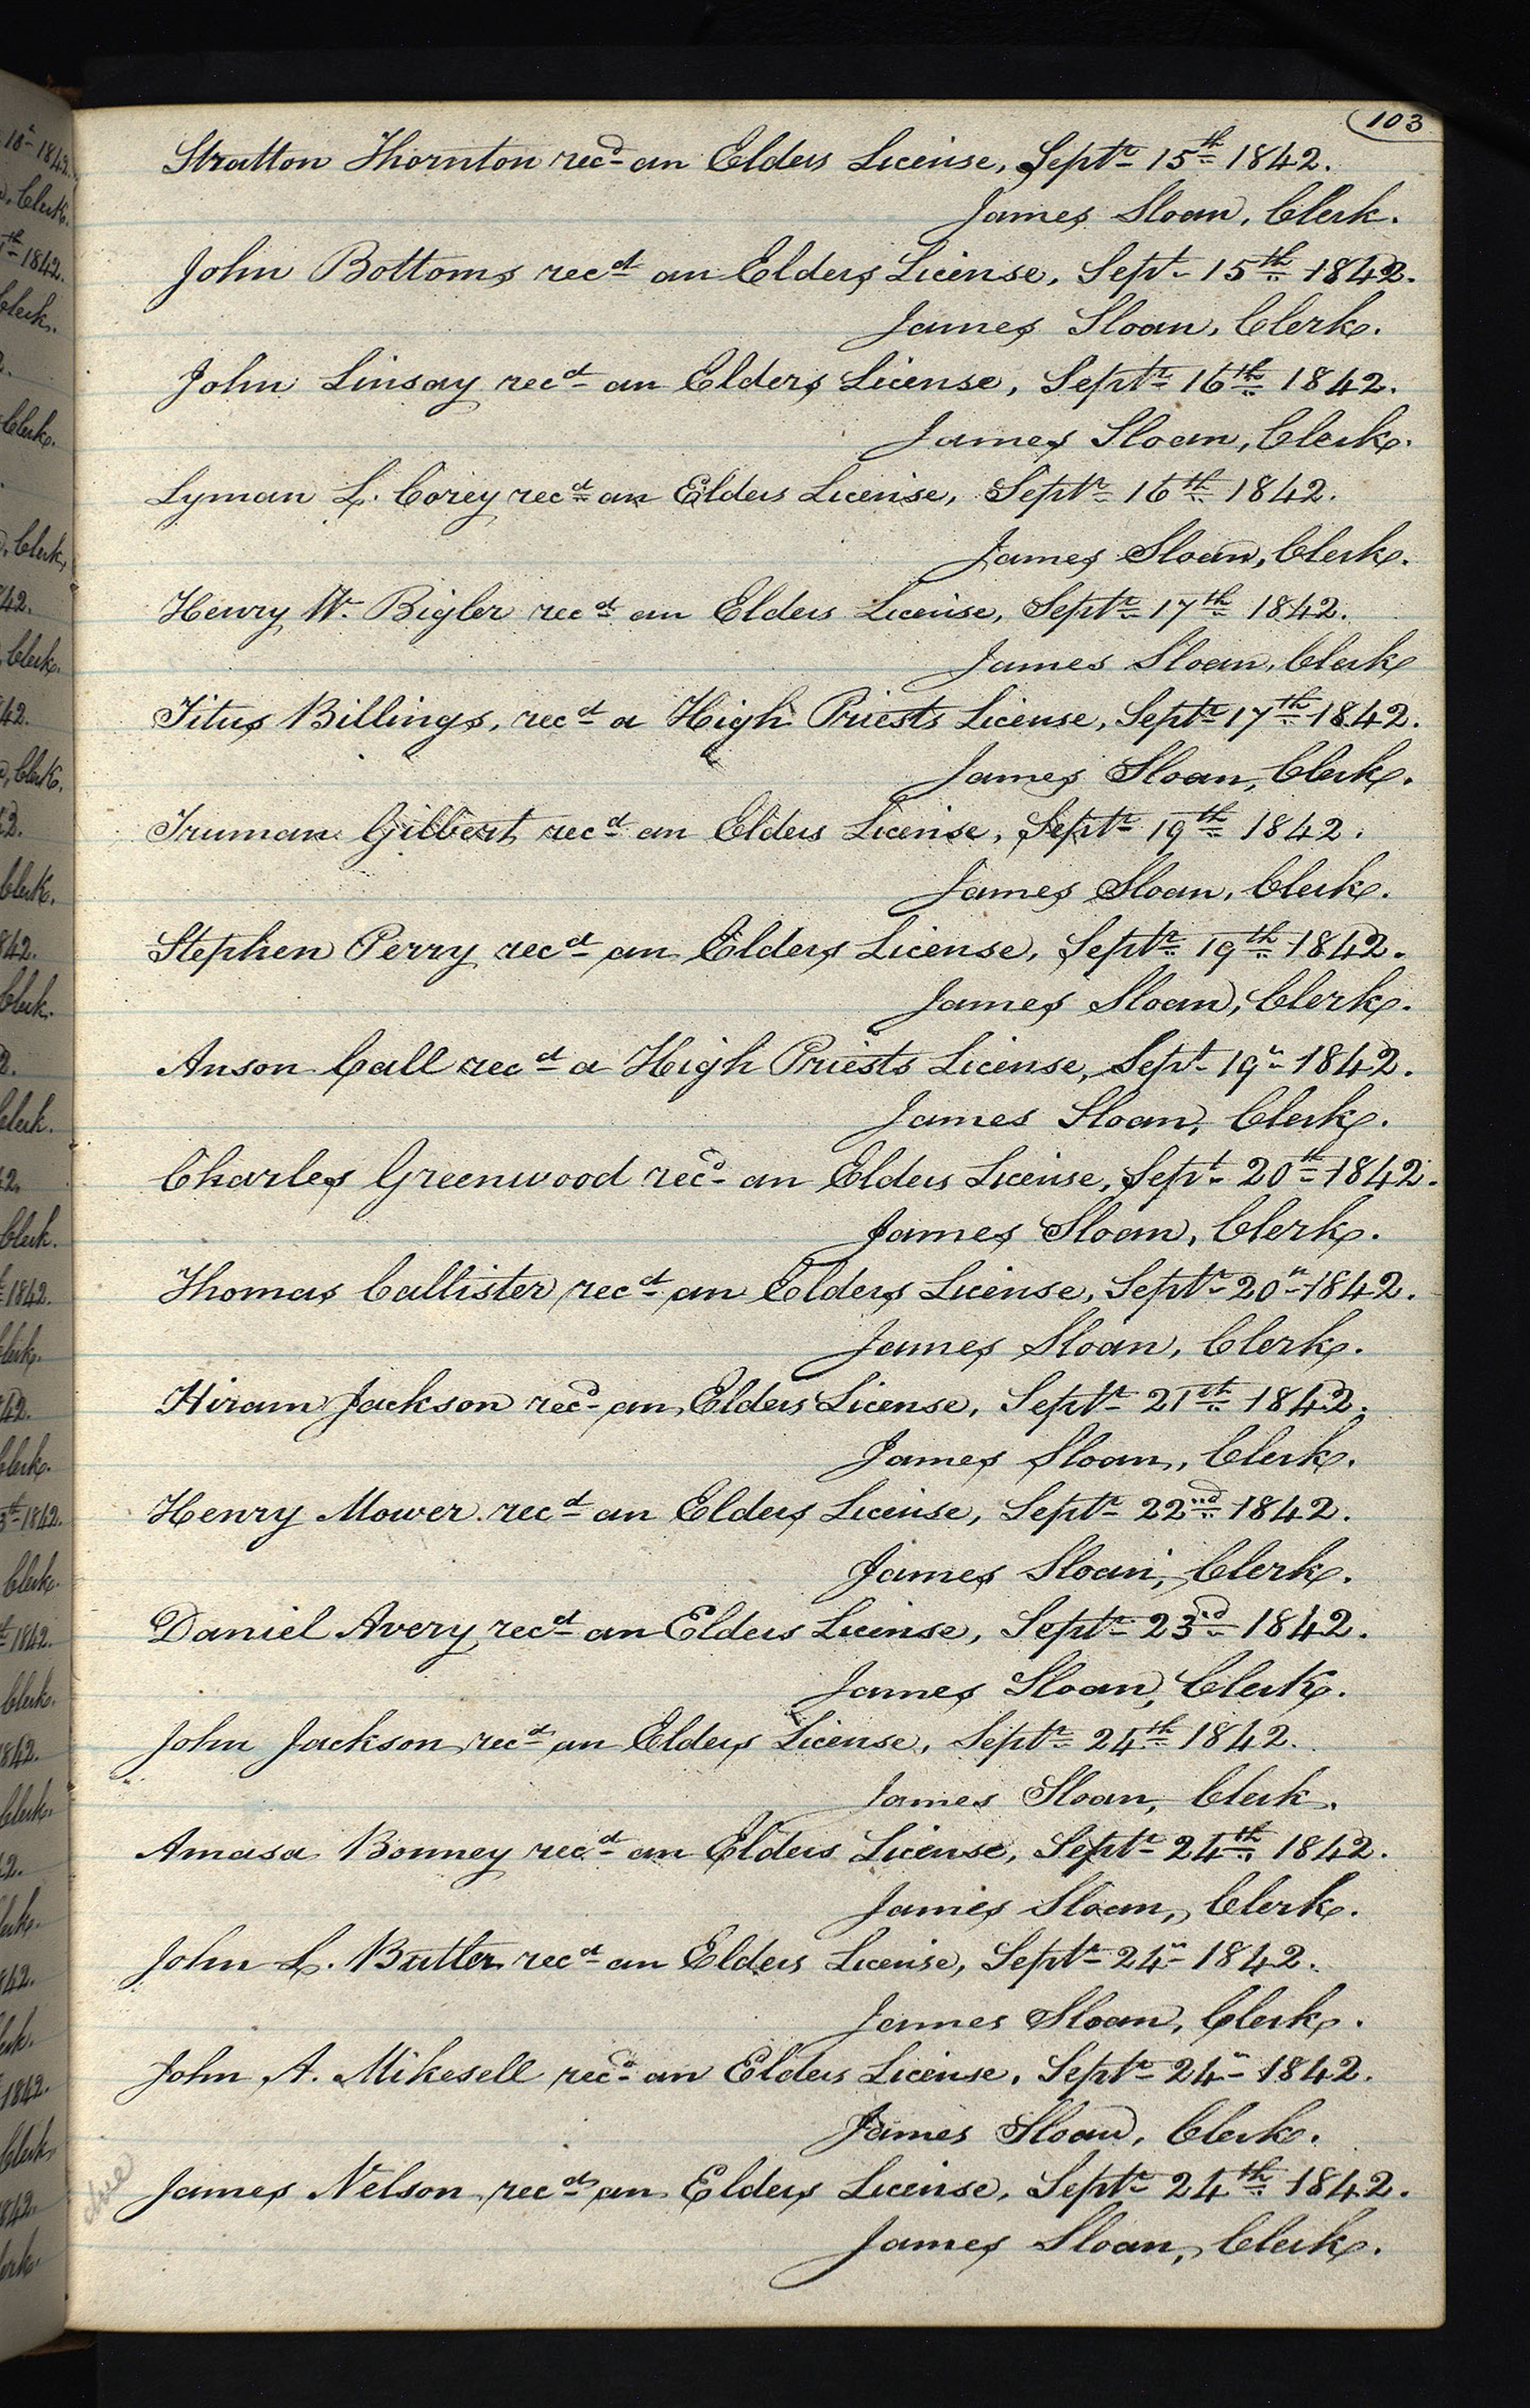 103
Stratton Thornton recd an Elders License, Septr 15th 1842.
James Sloan, Clerk.
John Bottoms recd an Elders License, Sept 15th 1842.
James Sloan, Clerk.
John Linsay recd an Elders License, Septr 16th 1842.
James Sloan, Clerk.
Lyman L. Corey recd an Elders License, Septr 16th 1842.
James Sloan, Clerk.
Henry W. Bigler recd an Elders License, Septr 17th 1842.
James Sloan, Clerk
Titus Billings, recd a High Priests License, Septr 17th 1842.
James Sloan, Clerk.
Truman Gilbert recd an Elders License, Septr 19th 1842.
James Sloan, Clerk.
Stephen Perry recd an Elders License, Septr 19th 1842.
James Sloan, Clerk.
Anson Call recd a High Priests License, Sept 19th 1842.
James Sloan, Clerk.
Charles Greenwood recd an Elders License, Sept 20th 1842.
James Sloan, Clerk.
Thomas Callister recd an Elders License, Septr 20th 1842.
James Sloan, Clerk.
Hiram Jackson recd an Elders License, Septr 21st 1842.
James Sloan, Clerk.
Henry Mower recd an Elders License, Septr 22nd 1842.
James Sloan, Clerk.
Daniel Avery recd an Elders License, Septr 23rd 1842.
James Sloan, Clerk.
John Jackson recd an Elders License, Septr 24th 1842.
James Sloan, Clerk.
Amasa Bonney recd an Elders License, Septr 24th 1842.
James Sloan, Clerk.
John L. Butler recd an Elders License, Septr 24th 1842.
James Sloan, Clerk.
John A. Mikesell recd an Elders License, Septr 24th 1842.
James Sloan, Clerk.
James Nelson recd an Elders License, Septr 24th 1842.
James Sloan, Clerk.